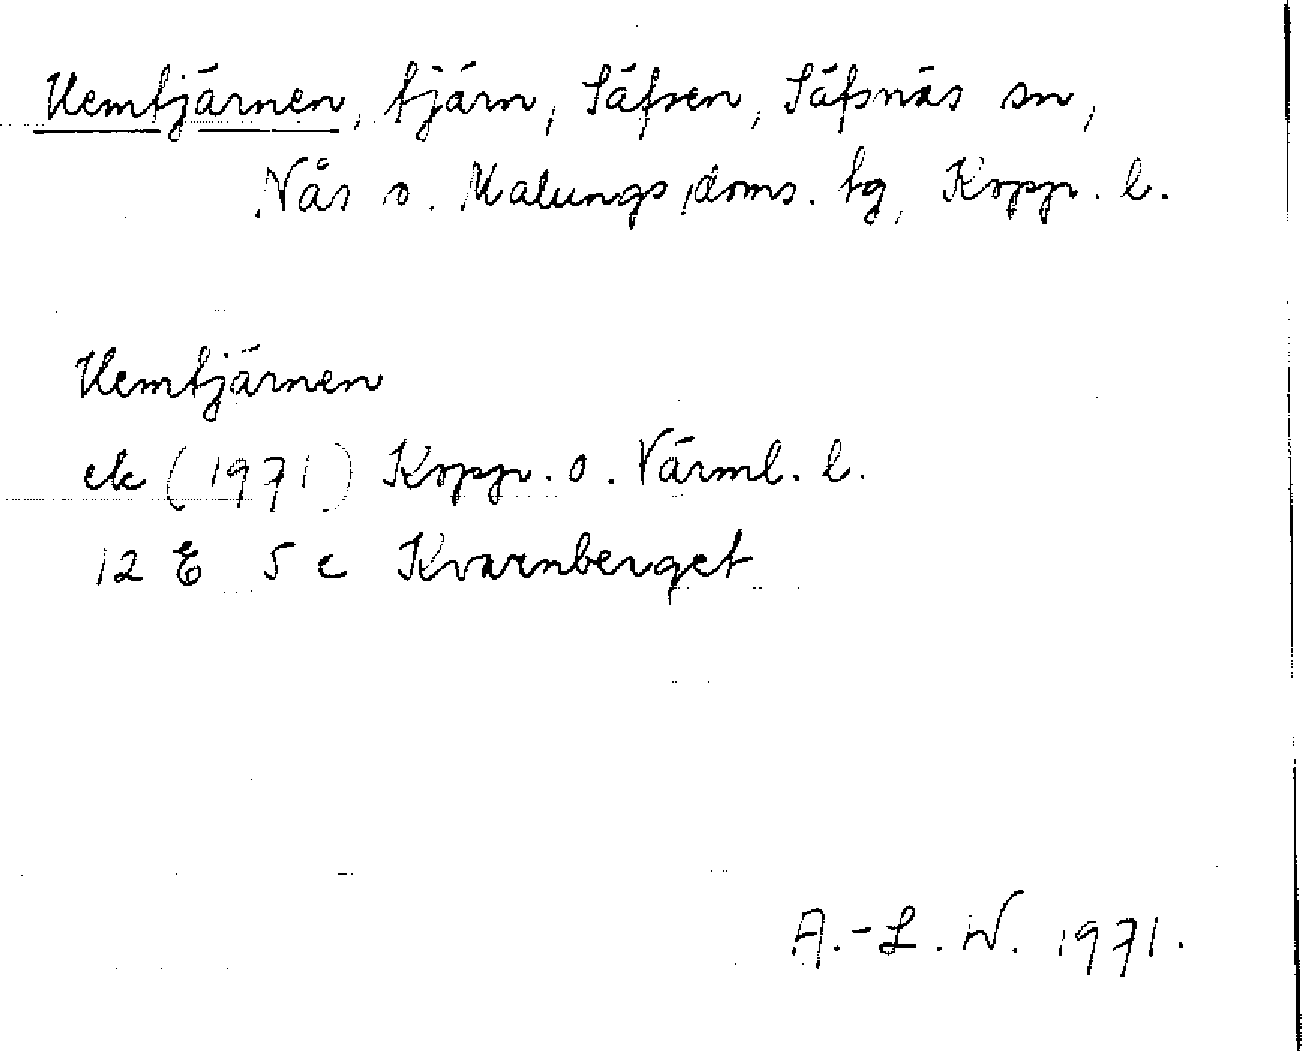 Hemtjärnen, tjärn, Säfsen, Säfsnäs sn,
Nås o. Malungs doms. tg, Kopp. l.
Hemtjärnen
ek (1971) Kopp. o. Värml. l.
12 E 5 c Kvarnberget
A.-L. W. 1971.